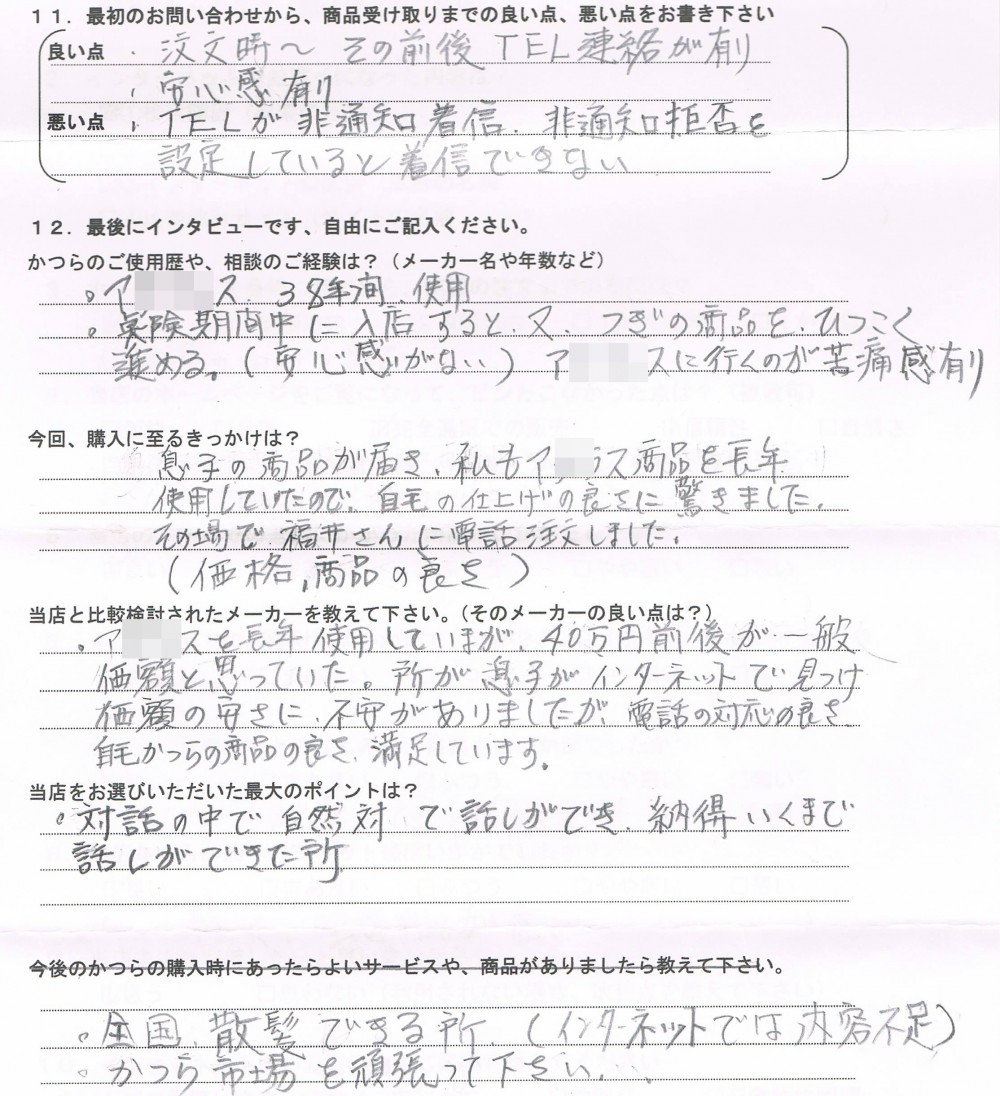 １１．最初のお問い合わせから、商品受け取りまでの良い点、悪い点をお書き下さい
良い点 ・注文時～その前後TEL連絡が有り
・安心感有り
悪い点 ・TELが非通知着信、非通知拒否を
設定していると着信できない
１２．最後にインタビューです、自由にご記入ください。
かつらのご使用歴や、相談のご経験は？（メーカー名や年数など）
。ア ス、38年間、使用
。実険期間中に入店すると、又、つぎの商品を、ひつこく
進める。（安心感がない）ア スに行くのが苦痛感有り
今回、購入に至るきっかけは？
息子の商品が届き、私もア ラス商品を長年
使用していたので、自毛の仕上げの良さに驚きました。
その場で福井さんに電話注文しました。
（価格,商品の良さ）
当店と比較検討されたメーカーを教えて下さい。（そのメーカーの良い点は？）
。ア スを長年使用していまが、40万円前後が一般
価額と思っていた。所が息子がインターネットで見つけ
価額の安さに、不安がありましたが、電話の対応の良さ
自毛かつらの商品の良さ、満足しています。
当店をお選びいただいた最大のポイントは？
。対話の中で自然対で話しができ、納得いくまで
話しができた所
今後のかつらの購入時にあったらよいサービスや、商品がありましたら教えて下さい。
。全国、散髪できる所、（インターネットでは内容不足）
。かつら市場を頑張って下さい、、、